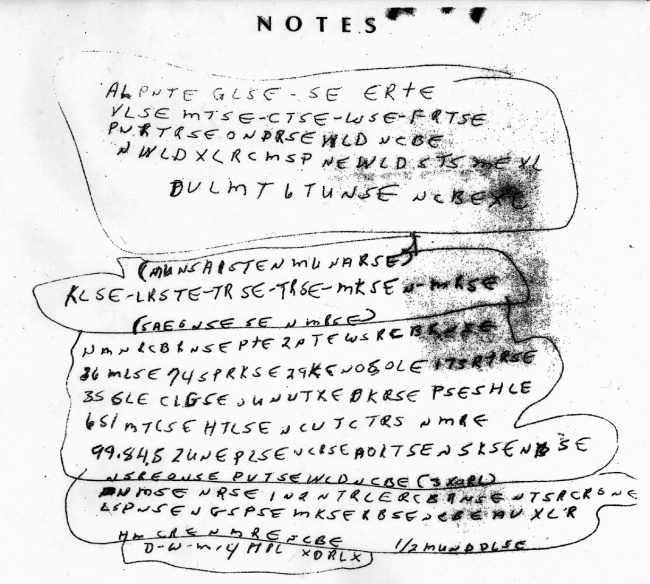 NOTES
ALPNTE GLSE - SE ERTE
VLSE MTSE-CTSE-WSE-FRTSE
PNRTRSE ONDRSE WLD NCBE
NWLDXLRCMSP NEWLDSTS MEXL
DULMT6TUNSE NCBEXC
(MUNSARSTEN MUNARSE)
KLSE-LRSTE-TRSE-TRSE-MKSEN-MRSE
(SAEGNSE SE N MRSE)
NMNRCBRNSE PTE 2 PTE WSRCBRNSE
36 MLSE 74 SPRKSE 29 KENOSOLE 173 RTRSE
35 GLE CLGSE UNUTXE DKRSE PSESHLE
651 MTCSE HTLSE NCUTCTRS NMRE
99.84.5 2UNEPLSE NCRSE AOLTSE NSKSENBSE
NSREONSE PUTSE WLD NCBE (3 XORL)
NMSE NRSE IN2NTRLERCBRNSE NTSRCRONE
LSPNSE NGSPSE MKSERBSE NCBE AU XLR
HM CRE NMRE NCBE 1/2 MUNDDLSE
D-W-M-4 MPL XDRLX